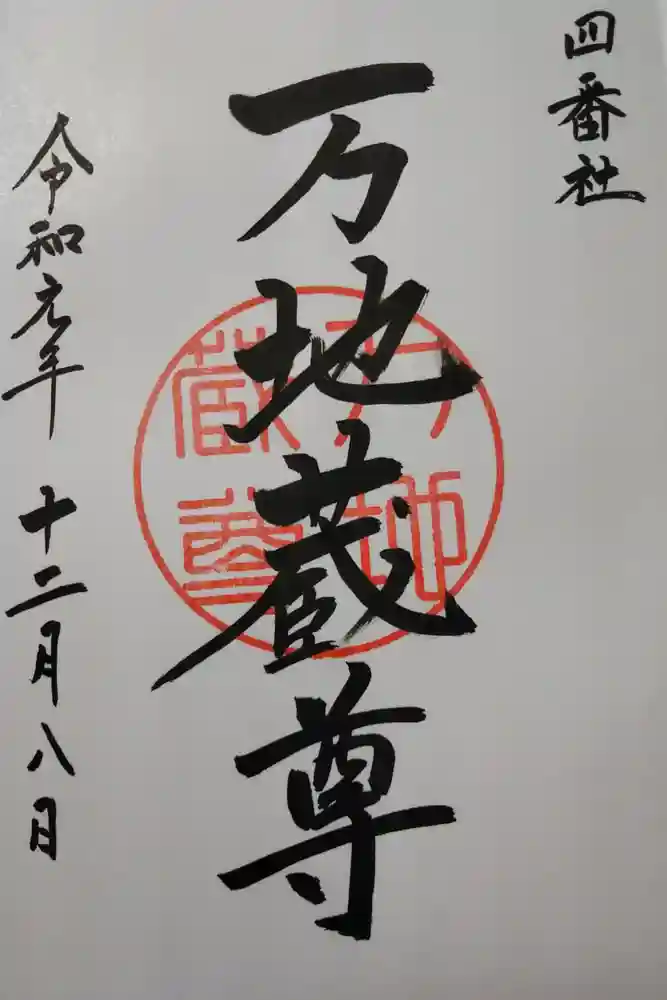 四番社
万地蔵尊
万地
蔵尊
令和元年 十二月八日